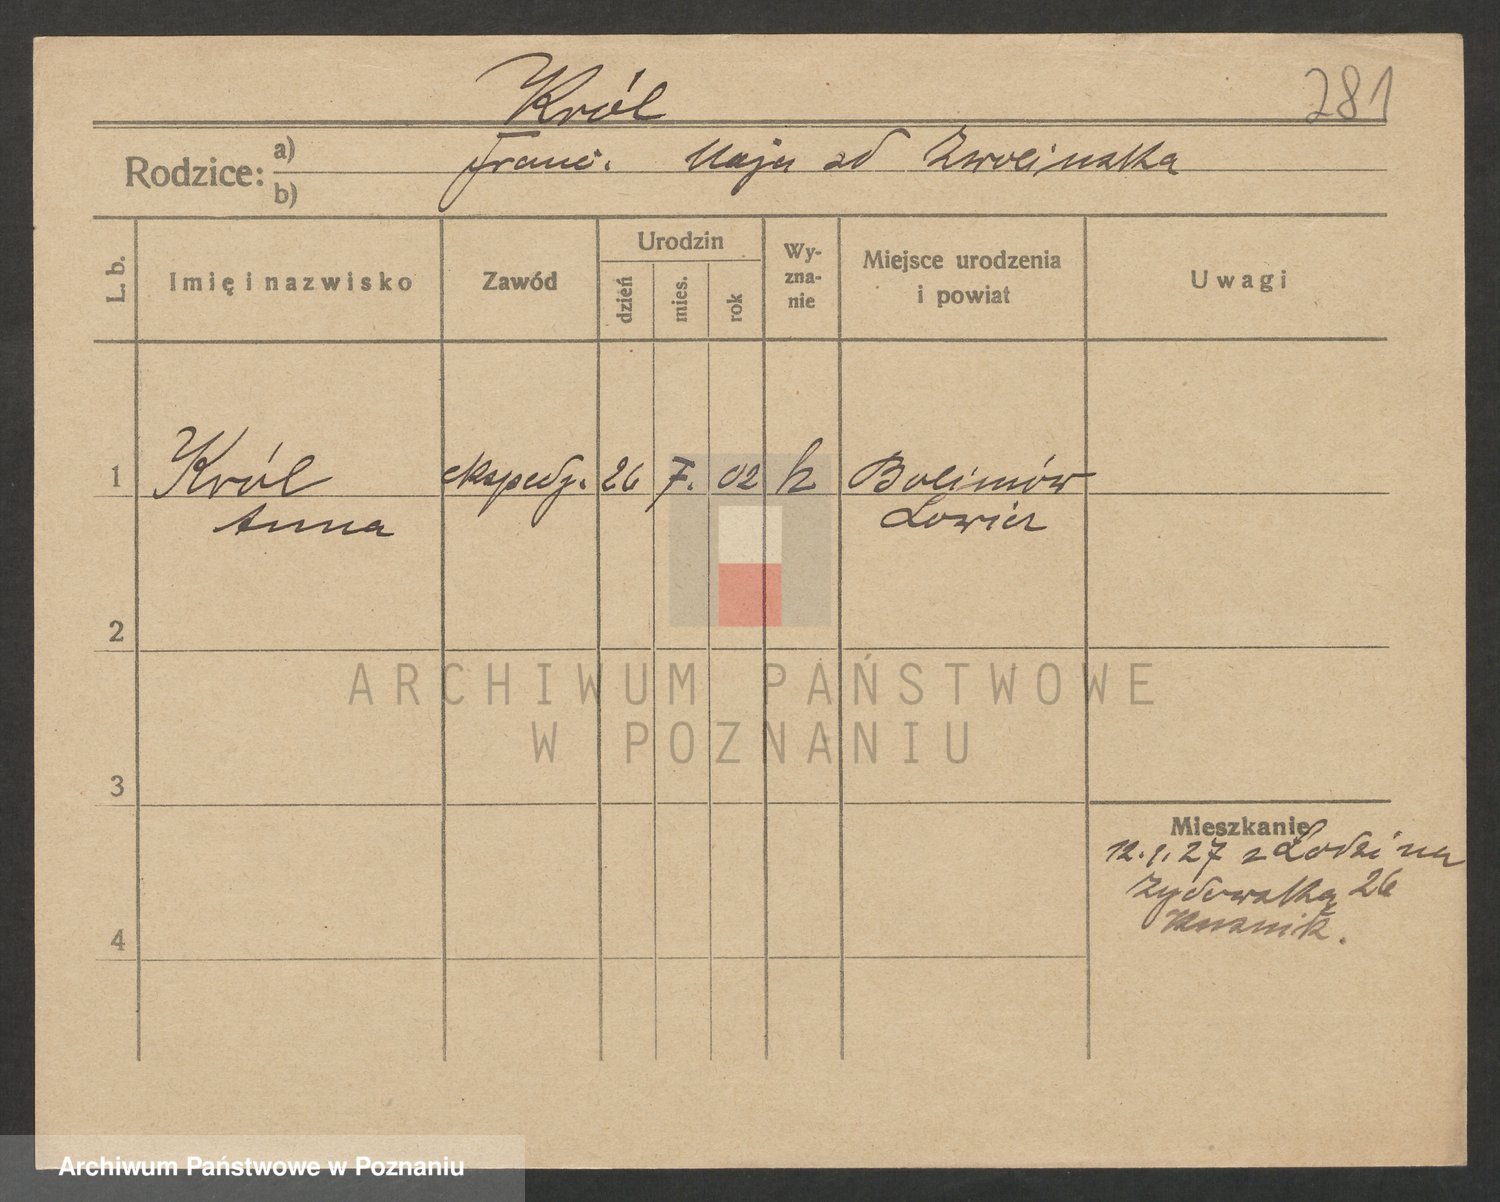 281
Król
Rodzice: a) b)
Franc. Maja od Zwolinska
L. b.
Imię i nazwisko
Zawód
Urodzin
dzień
mies.
rok
Wy-
zna-
nie
Miejsce urodzenia
i powiat
Uwagi
1 Król ekspedj. 26 7. 02 k Bolimów
Anna Lowicz
2
3
4
Mieszkanie
12.1.27 z Lodzi na
Zydowska 26
ARCHIWUM PAŃSTWOWE
W POZNANIU
Archiwum Państwowe w Poznaniu